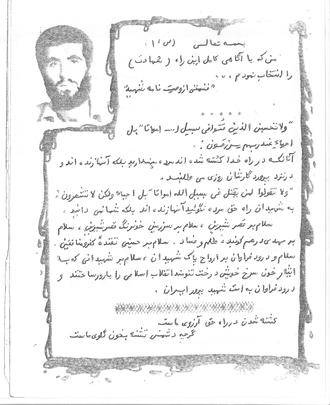 بسمه تعالی (ص ۱)
من که با آگاهی کامل این راه (شهادت)
را انتخاب نمودم ...
"قسمتی از وصیت نامه شهید"
"ولا تحسبن الذین قتلوا فی سبیل الله امواتا" بل
احیاء عند ربهم یرزقون.
آنانکه در راه خدا کشته شده اند مرده نپندارید بلکه آنها زنده اند و
در نزد پروردگارشان روزی می طلبند.
"ولا تقولوا لمن یقتل فی سبیل الله امواتا" بل احیاء ولکن لا تشعرون"
به شهیدان راه حق مرده نگوئید آنها زنده اند بلکه شما نمی دانید.
سلام بر قصر شیرین، سلام بر سرزمین خونرنگ قصرشیرین، سلام
بر مهدی درهم کوبنده ظلم و فساد. سلام بر خمینی
سلام و درود فراوان بر ارواح پاک شهیدان، سلام بر شهیدانی که با
ایثار خون سرخ خویش درخت تنومند انقلاب اسلامی را بارور ساختند و
درود فراوان به امت شهید پرور ایران.
کشته شدن در راه حق آرزوی ماست
گرچه دشمن تشنه بخون گلوی ماست